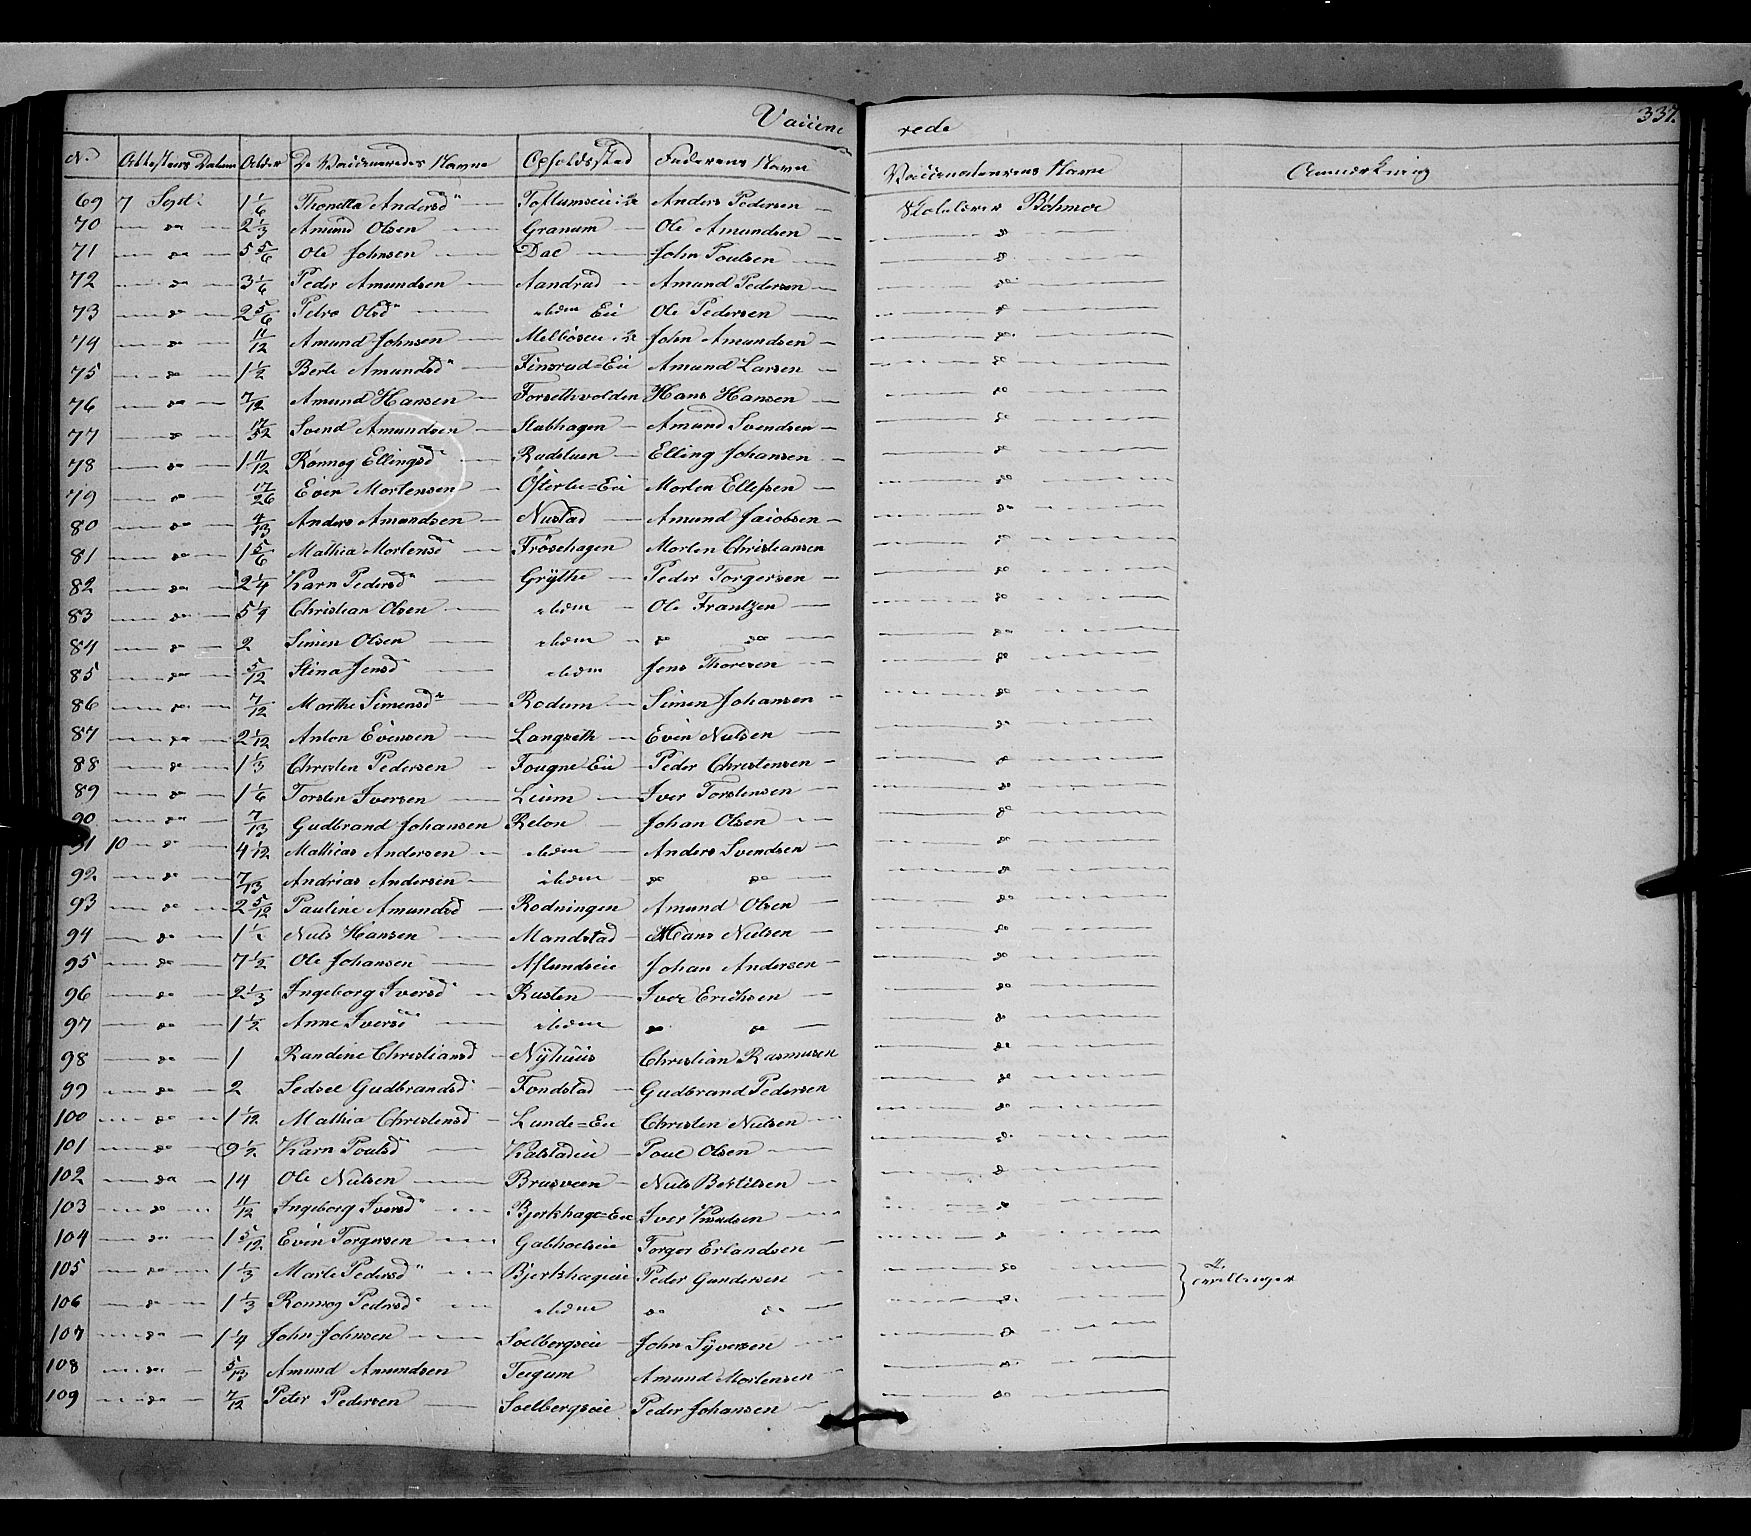 Vaccine rede 337.
N. Attestens Datum Alder De Vaccineredes Navne Opholdssted Faderens Navn Vaccinateurens Navn Anmærkning
69 7 Sept: 1 1/6 Thonetta Andersd Anders Pedersen Böhmer
70 — do — 2 1/3 Amund Olsen — Granum — Ole Amundsen — do —
71 — do — 5 5/6 Ole Johnsen — Dal — John Poulsen — do —
72 — do — 3 1/6 Peder Amundsen — Aandrud — Amund Pedersen — do —
73 — do — 2 5/6 Petra Olsd — ibidem Eie Ole Pedersen — do —
74 — do — 11/12 Amund Johnsen — John Amundsen — do —
75 — do — 1 1/2 Berte Amundsd — Finsrud=Eie Amund Larsen — do —
76 — do — 7/12 Amund Hansen — Forsethvolden Hans Hansen — do —
77 — do — Svend Amundsen — Stabhagen — Amund Svendsen — do —
78 — do — 1 11/12 Rønnog Ellingsd — Elling Johansen — do —
79 — do — 17/26 Even Mortensen — Österlie=Eie Morten Ellefsen — do —
80 — do — 4/13 Anders Amundsen — Nustad — Amund Jacobsen — do —
81 — do — 1 5/6 Mathia Mortensd — Frösehagen Morten Christiansen — do —
82 — do — 2 1/4 Karn Pedersd — Grÿthe — Peder Torgersen — do —
83 — do — 5 1/4 Christian Olsen — ibidem — Ole Frantzen — do —
84 — do — 2 Simen Olsen — ibidem — do do — do —
85 — do — 5/12 Stina Jensd — ibidem Jens Thoresen — do —
86 — do — 7/12 Marthe Simensd — Rodum — Simen Johansen — do —
87 — do — 2 1/12 Anton Evensen — Langseth — Even Nielsen — do —
88 — do — 1 1/3 Christen Pedersen — Fougne Eie — Peder Christensen — do —
89 — do — 1 1/6 Torsten Iversen — Lium — Iver Torstensen — do —
90 — do — 7/13 Gudbrand Johansen Johan Olsen — do —
91 10 — do — 4 1/12 Mathias Andersen — ibidem — Anders Svendsen — do —
92 — do — 7/13 Andrias Andersen — ibidem — do do — do —
93 — do — 2 5/12 Pauline Amundsd — Rodningen Amund Olsen — do —
94 — do — Niels Hansen — Mandstad — Hans Nielsen — do —
95 — do — 7 1/2 Ole Johansen — Johan Andersen — do —
96 — do — 2 1/3 Ingeborg Iversd — Rusten — Iver Erichsen — do —
97 — do — 1 1/2 Anne Iversd — ibidem do do — do —
98 — do — 1 Randine Christiansd — Nÿhuus Christian Rasmusen — do —
99 — do — 2 Sedsel Gudbrandsd — Fondstad — Gudbrand Pedersen — do —
100 — do — 1 1/12 Mathia Christensd — Lunde=Eie Christen Nielsen — do —
101 — do — 9 1/2 Karn Poulsd — Kalstadeie — Poul Olsen — do —
102 — do — 14 Ole Nielsen — Brusveen — Niels Bertilsen — do —
103 — do — 11/12 Ingeborg Iversd — Bjerkhage=Eie Iver Knudsen — do —
104 — do — 1 5/12 Even Torgersen — Torger Erlandsen — do —
105 — do — 1 1/3 Marte Pedersd — Bjerkhageeie Peder Gundersen — do —
106 — do — 1 1/3 Rønnog Pedersd — ibidem do do — do — tvillinger
107 — do — 1 1/4 John Johnsen — Soelbergseie — John Sÿversen — do —
108 — do — 5/13 Amund Amundsen Amund Mortensen — do —
109 — do — 7/12 Peter Pedersen — Soelbergseie Peder Johansen — do —